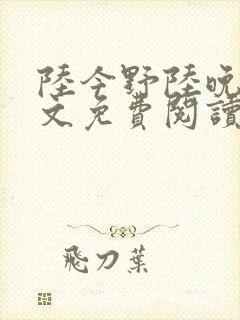 陸今野陸晚
文免費閱讀
飛刀葉